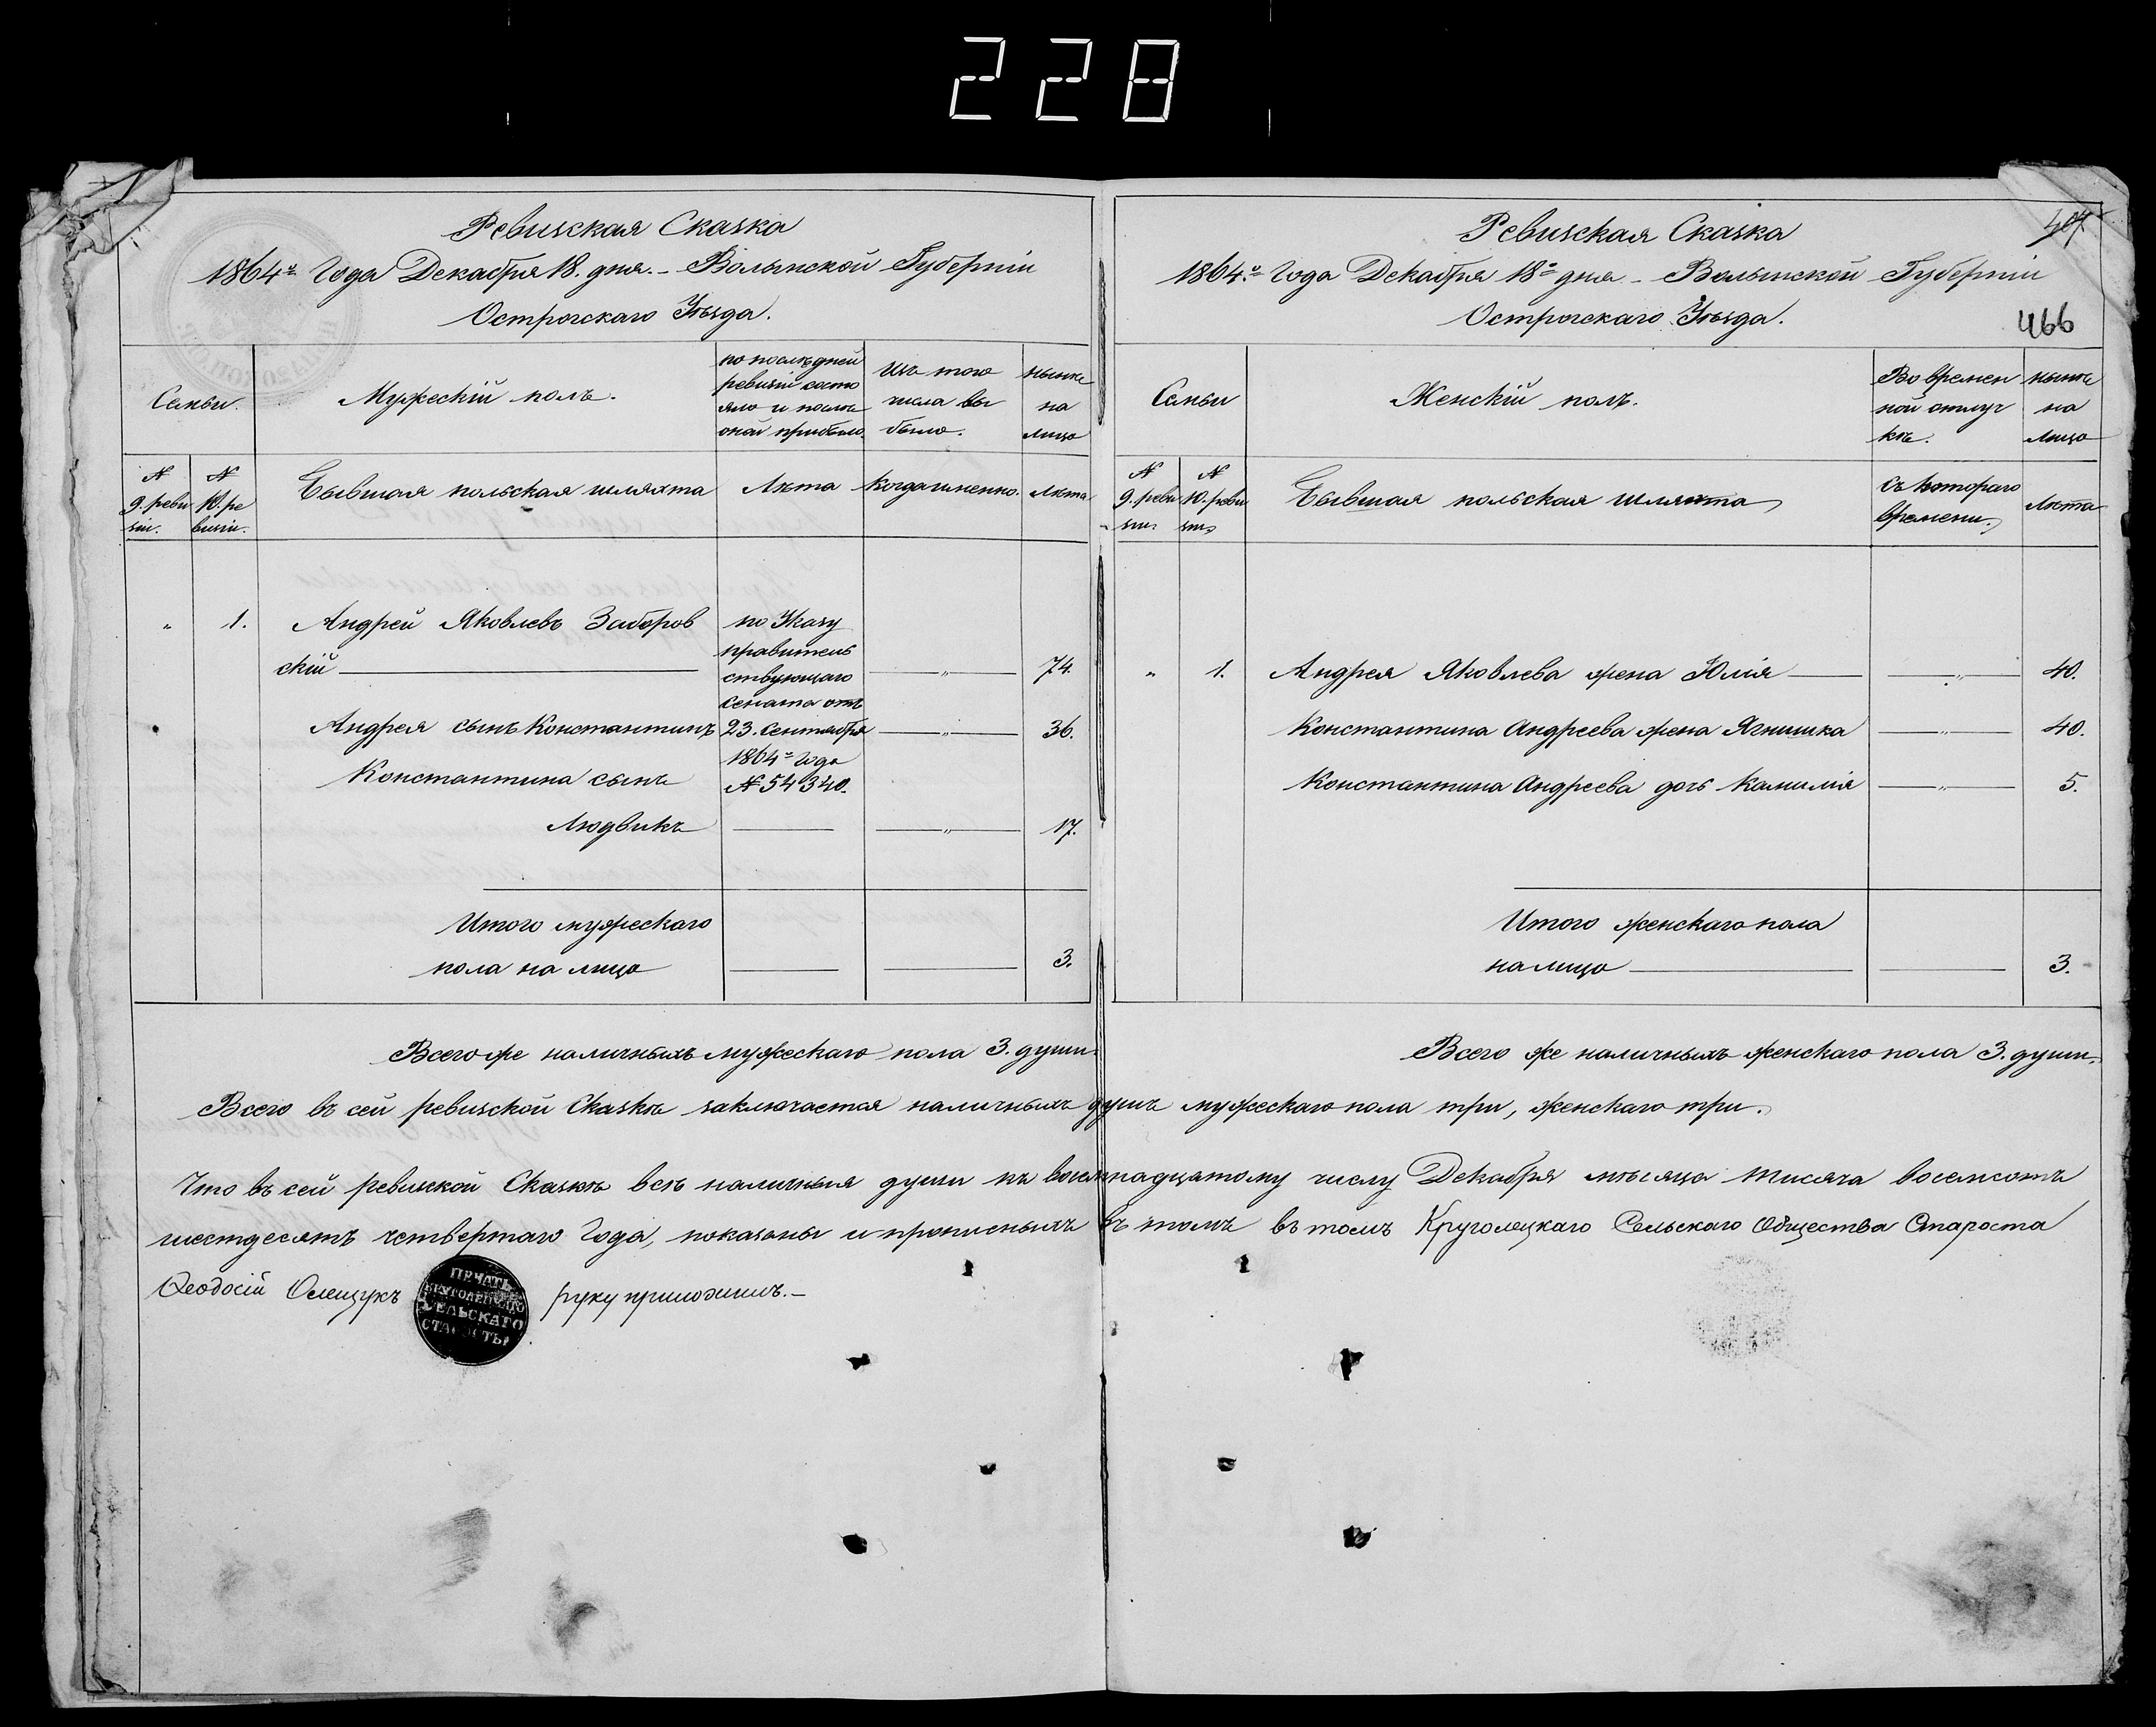 228
Ревизская Сказка
1864го Года Декабря 18. дня. – Волынской Губерніи
Острогскаго Уѣзда.
Семьи.
Мужескій полъ.
по послѣдней
ревизіи состо
яло и послѣ
оной прибыло.
Изъ того
числа вы
было.
нынѣ
на
лицо
№
9. реви
зіи.
№
10. ре
визіи.
Бывшая польская шляхта
Лѣта
Когда именно.
Лѣта
" 1. Андрей Яковлевъ Заборов
скій — " — 74.
по Указу
правитель
ствующаго
Сената отъ
23. Сентября
1864го Года
№ 54340.
Андрея сынъ Константинъ — " — 36.
Константина сынъ
Людвикъ — — " — 17.
Итого мужескаго
пола на лицо — — 3.
Всего же наличныхъ мужескаго пола 3. души.
407
Ревизская Сказка
1864го Года Декабря 18го дня – Волынской Губерніи
Острогскаго Уѣзда.
466
Семьи
Женскій полъ.
Во времен
ной отлуч
кѣ.
нынѣ
на
лицо
№
9. реви
зіи.
№
10. реви
зіи.
Бывшая польская шляхта
Съ котораго
времени.
Лѣта
" 1. Андрея Яковлева жена Юлія — — " — 40.
Константина Андреева жена Ягнишка — " — 40.
Константина Андреева дочь Камилія — " — 5.
Итого женскаго пола
на лицо — — 3.
Всего же наличныхъ женскаго пола 3. души.
Всего въ сей ревизской Сказкѣ заключается наличныхъ душъ мужескаго пола три, женскаго три.
Что въ сей ревизской Сказкѣ всѣ наличныя души къ восемнадцатому числу Декабря мѣсяца тисяча восемсотъ
шестдесятъ четвертаго Года, показаны и прописныхъ въ томъ въ томъ Круголецкаго Сельскаго Общества Староста
Ѳеодосій Олещукъ руку приложилъ. –
ПЕЧАТЬ
КРУГОЛЕЦКАГО
СЕЛЬСКАГО
СТАРОСТЫ